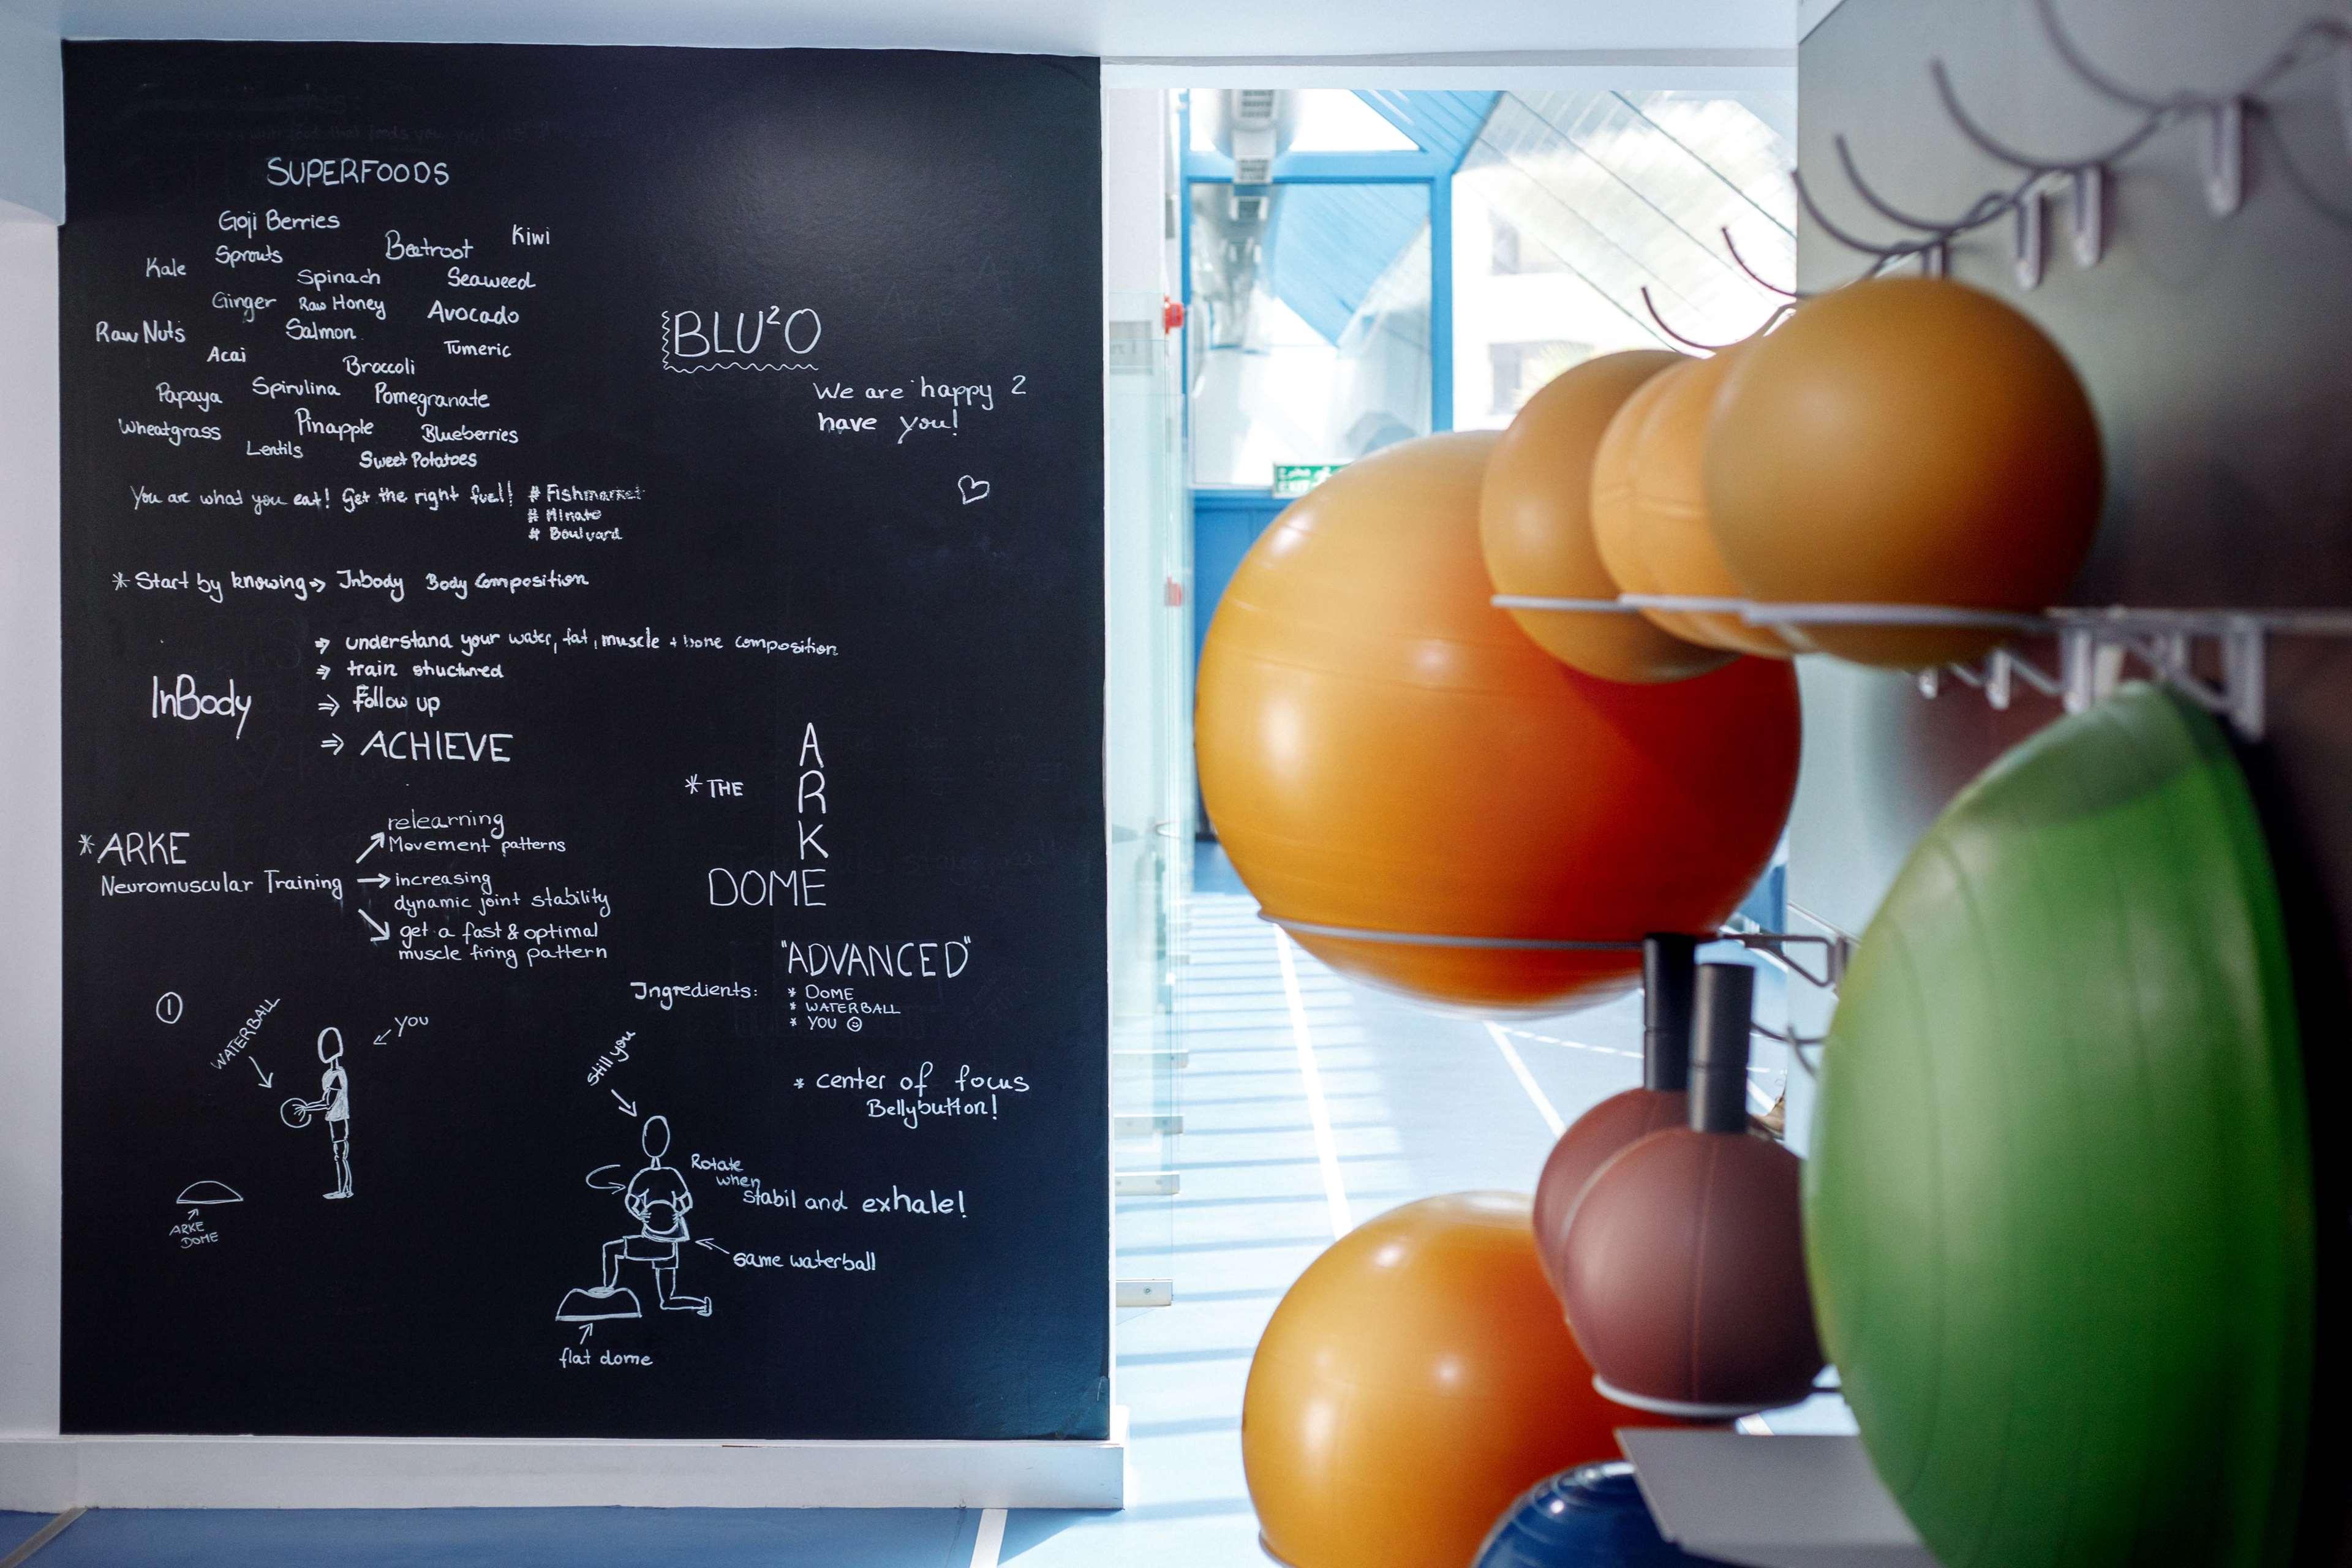 SUPERFOODS
Goji Berries
Kiwi
Sprouts
Beetroot
Kale
Spinach
Seaweed
Ginger
Raw Honey
Avocado
Raw Nuts
Salmon
Acai
Tumeric
Broccoli
Papaya
Spirulina
Pomegranate
Wheatgrass
Pinapple
Blueberries
Lentils
Sweet Potatoes
You are what you eat! Get the right fuel!
# Fishmarket
# Minato
# Boulvard
* Start by knowing ⇒ Inbody Body Composition
InBody
⇒ understand your water, fat, muscle + bone composition
⇒ train structured
⇒ Follow up
⇒ ACHIEVE
* ARKE
Neuromuscular Training
↗ relearning
Movement patterns
→ increasing
dynamic joint stability
↘ get a fast & optimal
muscle firing pattern
①
WATERBALL
YOU
ARKE
DOME
BLU²O
We are happy 2
have you!
* THE
A
R
K
DOME
"ADVANCED"
Ingredients:
* DOME
* WATERBALL
* YOU ☺
* center of focus
Bellybutton!
Still you
Rotate
when
stabil and exhale!
same waterball
flat dome